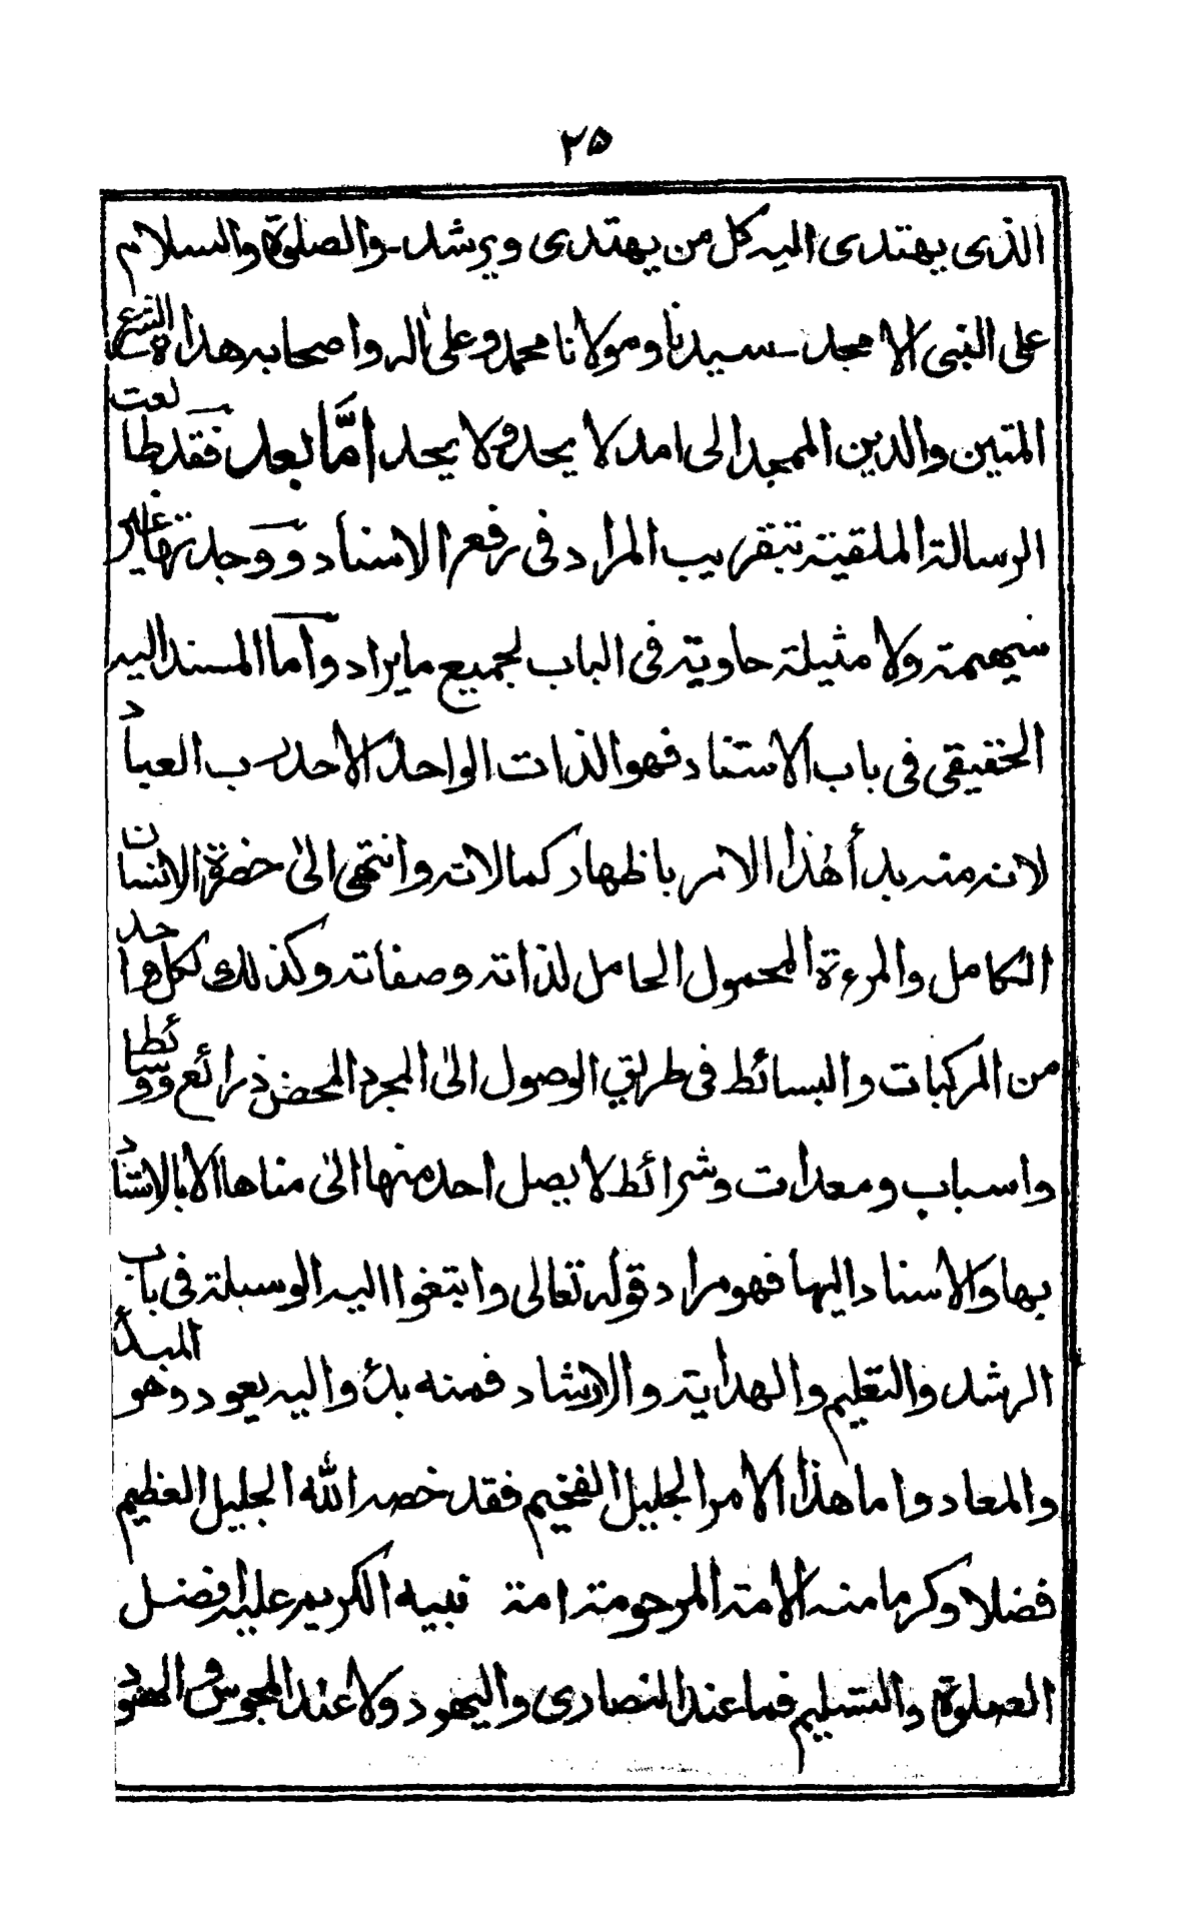 ٢٥
الذى يهتدى اليه كل من يهتدى ويرشد ـ والصلوة والسلام
على النبى الامجد ـ سيدنا ومولانا محمد وعلىٰ اله واصحابه هداة الشرع
المتين والدين الممجد الى امد لا يحد ولا يحد امَّا بعد فقد طالعت
الرسالة الملقبة بتقريب المراد فى رفع الاسناد ووجدتها غير
سهمة ولا مثيلة حاوية فى الباب لجميع ما يراد واما المسند اليه
الحقيقى فى باب الاستناد فهو الذات الواحد الاحد رب العباد
لانه منه بدأ هٰذا الامر باظهار كمالاته وانتهى الىٰ حضرة الانسان
الكامل والمرءة المحمول الحامل لذاته وصفاته وكذلك لكل واحد
من المركبات والبسائط فى طريق الوصول الىٰ المجرد المحض ذرائع ووسائط
واسباب ومعدات وشرائط لا يصل احد منها الىٰ مناها الا بالاستناد
بها والاسناد اليها فهو مراد قوله تعالى وابتغوا اليه الوسيلة فى باب
الرشد والتعليم والهداية والارشاد فمنه بدئ واليه يعود وهو المبدأ
والمعاد واما هذا الامر الجليل الفخيم فقد خصه الله الجليل العظيم
فضلا وكرما منه الامة المرحومة امة نبيه الكريم عليه افضل
الصلوة والتسليم فما عند النصارى واليهود ولا عند المجوس والهنود